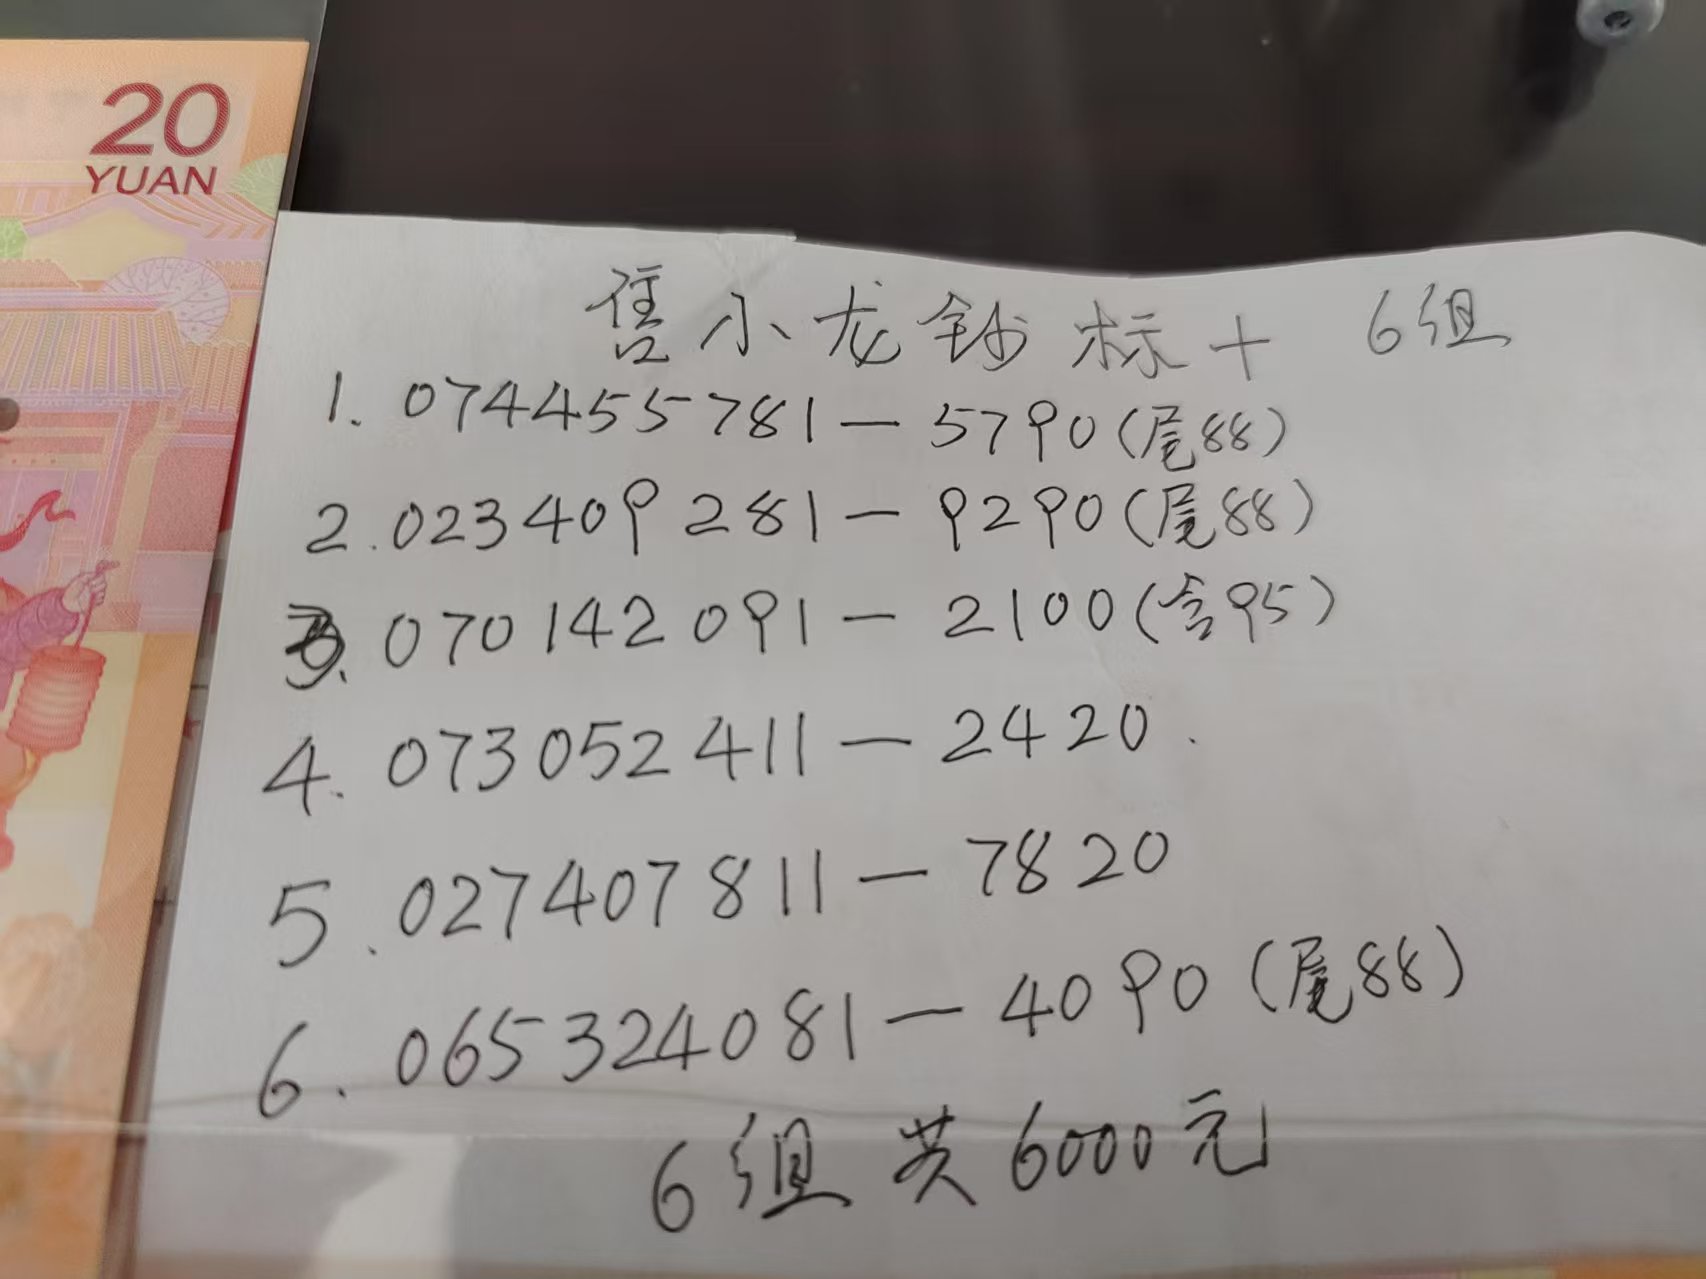 20
YUAN
售小龙钞标十 6组
1. 074455781—5790(尾88)
2. 023409281—9290(尾88)
3. 070142091—2100(含95)
4. 073052411—2420.
5. 027407811—7820
6. 065324081—4090(尾88)
6组共6000元